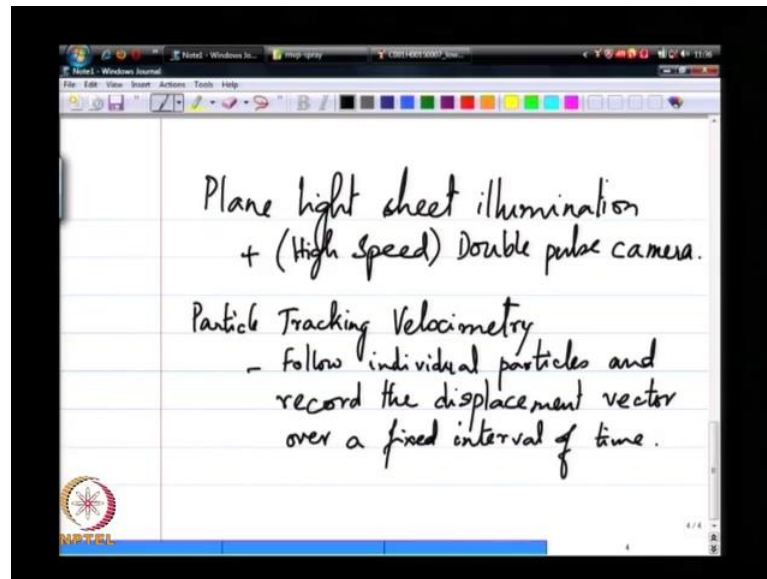 Note1 - Windows Jo... mvp spray C001H001S0007_low... 11:36
Note1 - Windows Journal
File Edit View Insert Actions Tools Help
Plane light sheet illumination
+ (High Speed) Double pulse camera.
Particle Tracking Velocimetry
- Follow individual particles and
record the displacement vector
over a fixed interval of time.
4/4
NPTEL
4